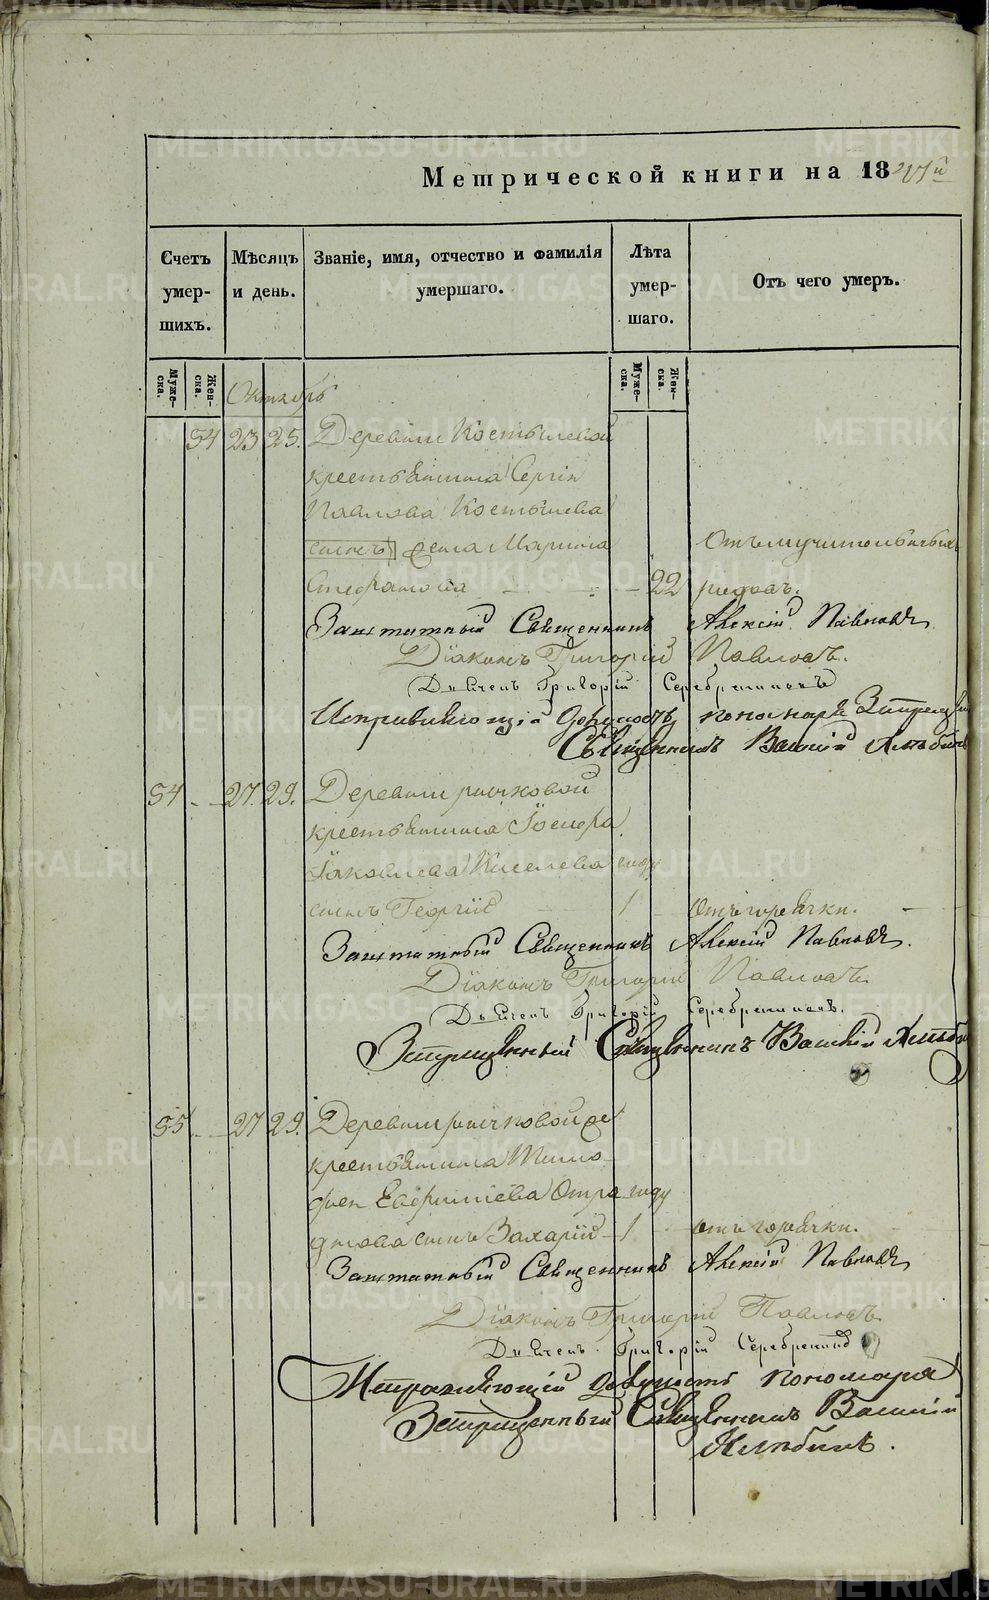 METRIKI.GASO-URAL.RU
Метрической книги на 18
Счетъ умер- шихъ.
Мѣсяцъ и день.
Званіе, имя, отчество и фамилія умершаго.
Лѣта умер- шаго.
Отъ чего умеръ.
Муже- ска.
Жен- ска.
Муже- ска.
Жен- ска.
Октябрь
54 23 25. Деревни Костылевой
крестьянина Сергія
Павлова Костылева
жена Марина
Стефанова 22
Заштатный Священникъ Алексій Павловъ
Діаконъ Григорій Павловъ.
Дьячекъ Григорій Серебренниковъ
Исправляющій должность пономаря
Священникъ Василій
54 27. 29. Деревни
крестьянина
Іаковлева Киселева году
сынъ Георгій 1 отъ горячки.
Заштатный Священникъ Алексій Павловъ.
Діаконъ Григорій Павловъ.
Дьячекъ Григорій Серебренниковъ.
Запрещенный Священникъ Василій
55 27 29. Деревни
крестьянина Тимо-
фея году
сынъ Захарій 1 отъ горячки.
Заштатный Священникъ Алексій Павловъ
Діаконъ Григорій Павловъ
Дьячекъ Григорій
Исправляющій должность пономаря
Запрещенный Священникъ Василій